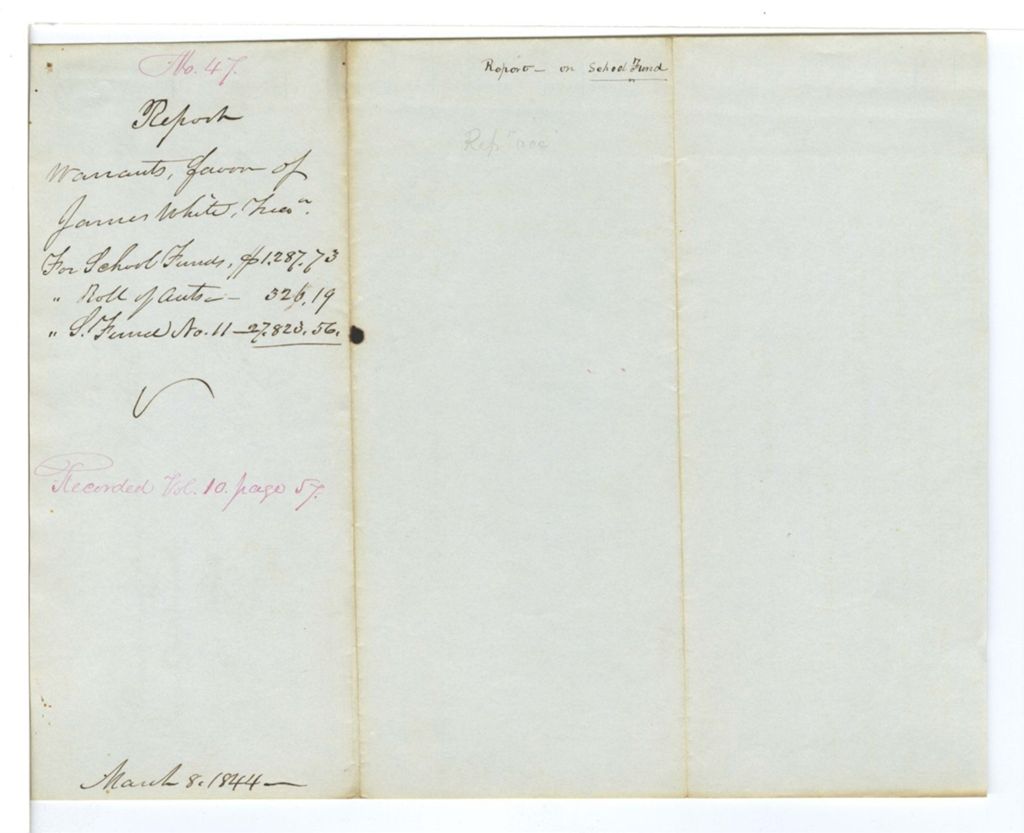 No. 47.
Report
Warrants, favor of
James White, Treasr.
For School Funds, $1,287.73
" Roll of Auts — 326.19
" S. Fund No. 11 — 27,823.56.
Recorded Vol. 10. page 57.
March 8. 1844 —
Report — on School Fund